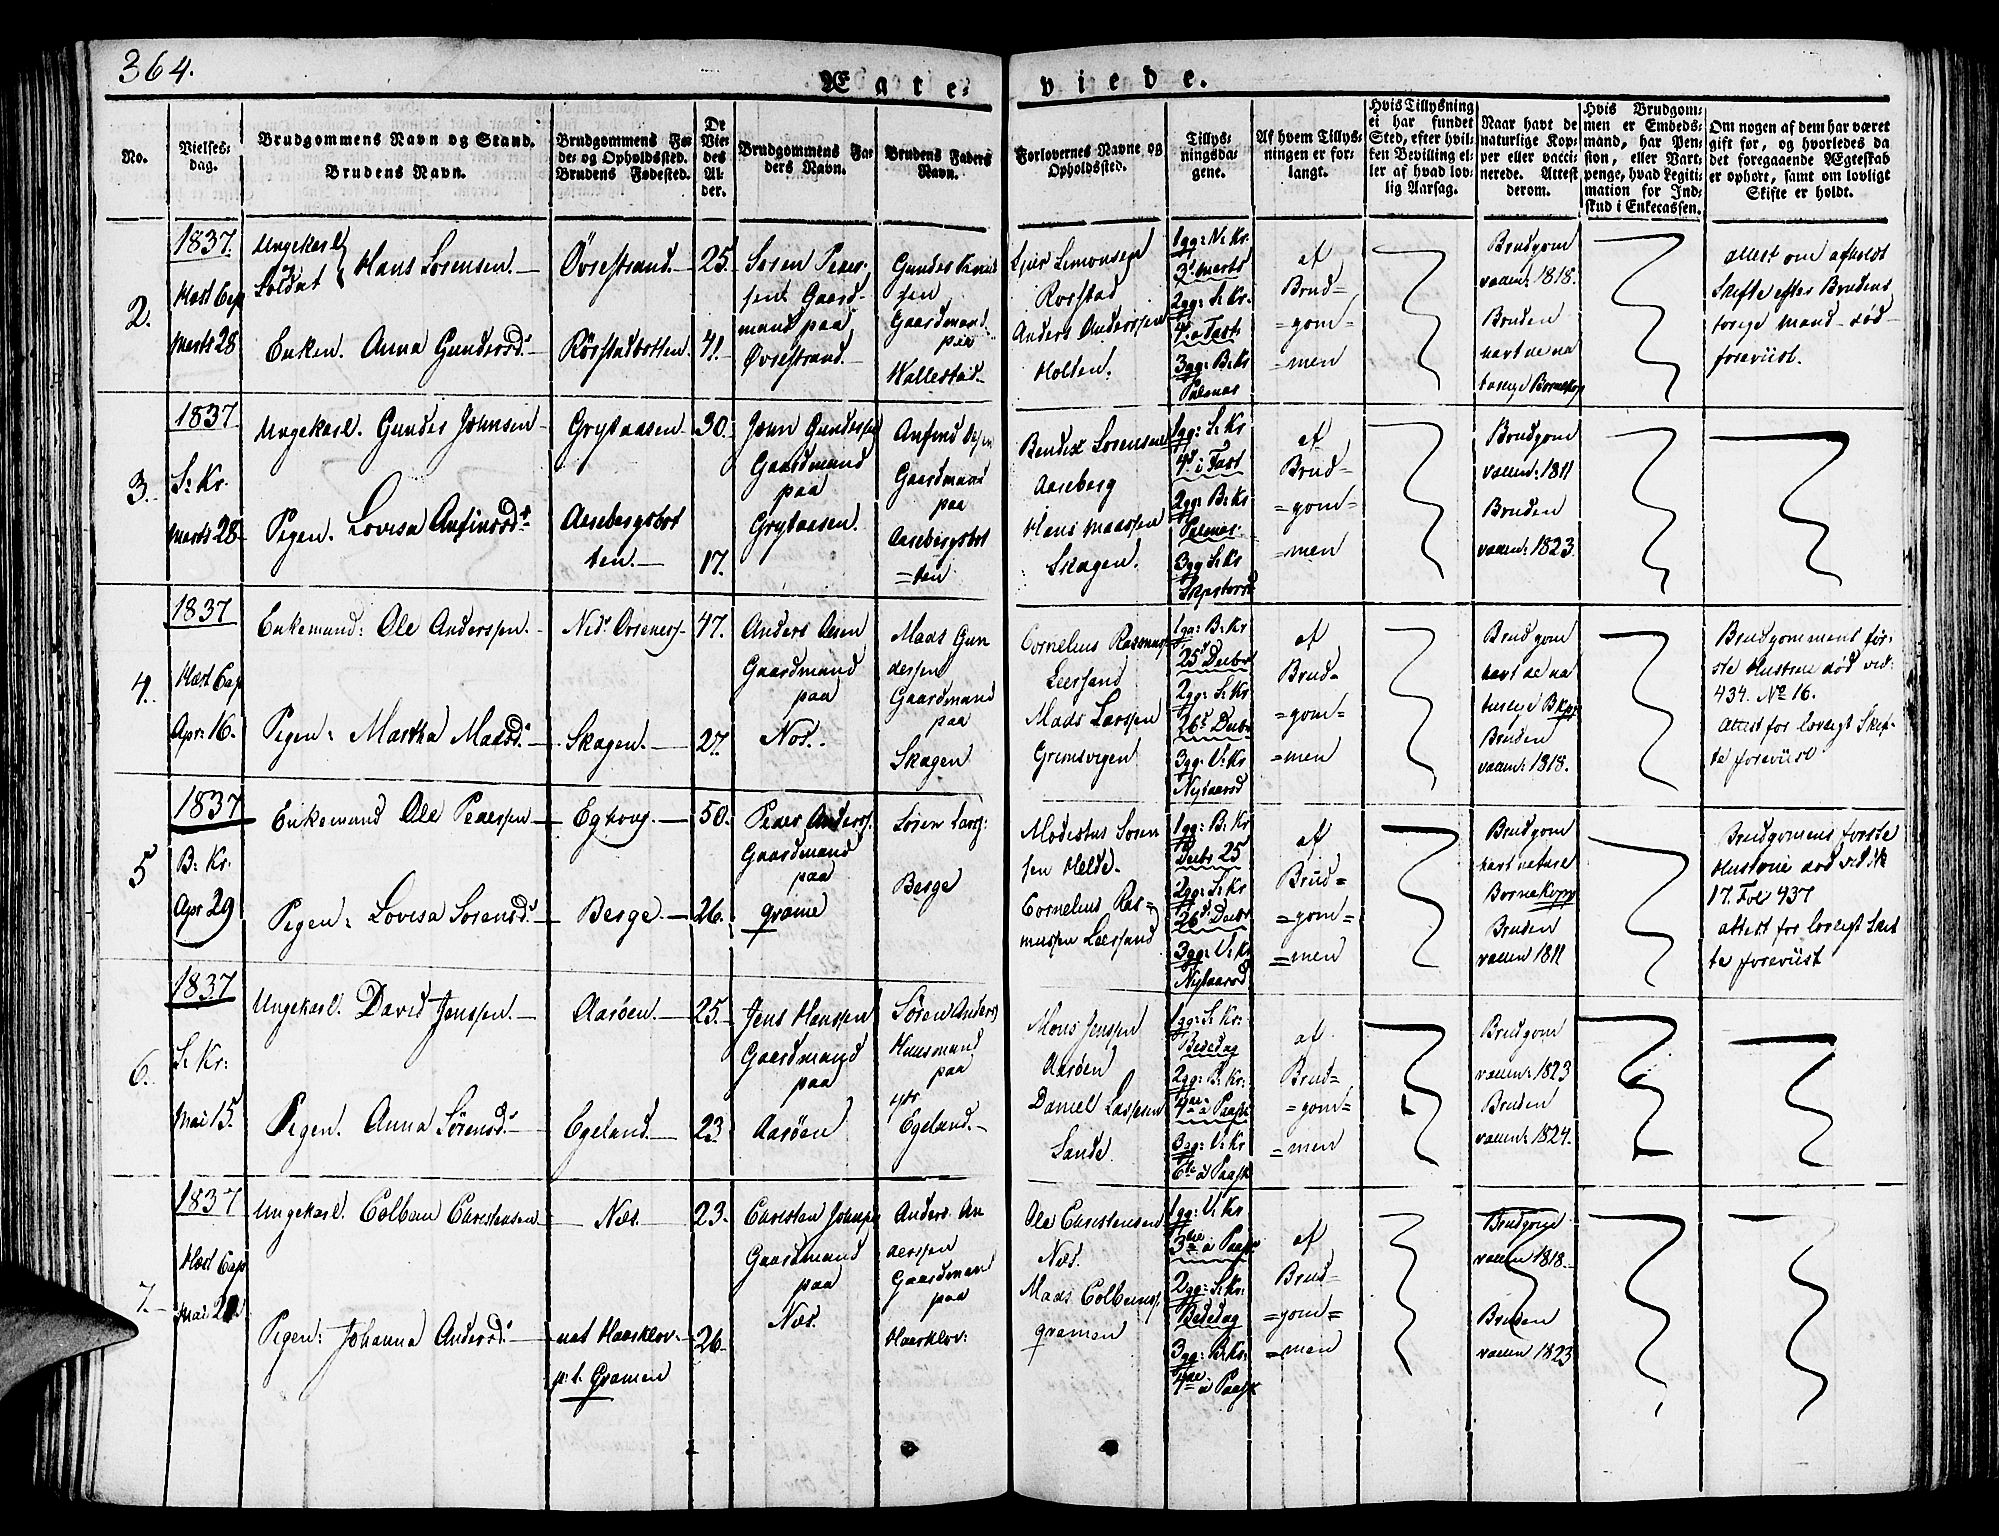 364.
Ægte-
viede.
No.
Vielses-
dag.
Brudgommens Navn og Stand.
Brudens Navn.
Brudgommens Fø-
de- og Opholdssted.
Brudens Fødested.
De
Vie-
des
Al-
der.
Brudgommens Fa-
ders Navn.
Brudens Faders
Navn.
Forlovernes Navne og
Opholdssted.
Tillys-
ningsda-
gene.
Af hvem Tillys-
ningen er for-
langt.
Hvis Tillysning
ei har fundet
Sted, efter hvil-
ken Bevilling el-
ler af hvad lov-
lig Aarsag.
Naar havt de
naturlige Kop-
per eller vacci-
nerede. Attest
derom.
Hvis Brudgom-
men er Embeds-
mand, har Pen-
sion, eller Vart-
penge, hvad Legiti-
mation for Ind-
skud i Enkecassen.
Om nogen af dem har været
gift før, og hvorledes da
det foregaaende Ægteskab
er ophørt, samt om lovligt
Skifte er holdt.
2.
1837.
Hæst Cap
Marts 28
Ungekarl
Soldat
Hans Sørensen.
Enken. Anna Gundersd.
Øvrestrand.
Rørstadbotten.
25.
41.
Søren Peder-
sen Gaard-
mand paa
Øvrestrand.
Gunder
sen
Gaardmand
paa
Wallestad
Simonsen
Rorstad
Anders Anderssen
Holten.
1gg: N: Kr.
3d Marts
2gg: S: Kr.
4d i Fast
3gg: B: Kr
Palmas
af
Brud=
=gom=
=men
Brudgom
vaccn: 1818.
Bruden
havt de na
turlige Børnekop
Attest om afholdt
Skifte efter Brudens
forrige Mand død
foreviist.
3.
1837
S: Kr.
Marts 28
Ungekarl. Gunder Johnsen
Pigen. Lovisa Anfinsd.
Grytaasen
Aasebergsbot
ten.
30.
17.
John Gunderssen
Gaardmand
paa
Grytaasen.
Anfind
Gaardmand
paa
Aasebergsbot
=ten
Bendix Sørensen
Aaseberg
Hans Maassen
Skagen.
1gg: S: Kr
4d i Fast
2gg: B: Kr
Palmas.
3gg S: Kr
Skjertorsd
af
Brud=
=gom=
=men
Brudgom
vaccn: 1811
Bruden
vaccn: 1823.
4.
1837
Hæst Cap
Apr: 16.
Enkemand: Ole Anderssen.
Pigen: Martha Madsd.
Ned:
Skagen.
47.
27.
Anders Olsen
Gaardmand
paa
Næs.
Mads Gun
derssen
Gaardmand
paa
Skagen
Cornelius Rasmuss
Leersand
Mads Larssen
Grimsvigen
1gg: B: Kr
25d Decbr
2gg: S: Kr
26d Decbr
3gg: V: Kr
Nytaarsd
af
Brud=
=gom=
=men
Brudgom
havt de na
turlige B
Bruden
vaccn: 1818.
Brudgommens før-
ste Hustrue død vid:
434. No 16.
Attest for lovligt Skif-
te foreviist
5
1837
B: Kr.
Apr 29
Enkemand Ole Pederssen
Pigen: Lovisa Sørensd.
Eghoug.
Berge.
50.
26.
Peder Anderss.
Gaardmand
paa
Grame
Søren Larss:
Berge
Modestus Søren
sen Helde.
Cornelius Ras=
mussen Leersand
1gg: B: Kr
Decbr 25
2gg: S: Kr
26d Decbr
3gg: V: Kr
Nytaarsd
af
Brud=
=gom=
=men
Brudgom
havt naturl
Børnekopp
Bruden
vaccn 1811
Brudgomens første
Hustrue død vid No
17. Fol 437
Attest for lovligt Skif
te foreviist
6.
1837
S: Kr:
Mai 15.
Ungekarl. David Jenssen.
Pigen. Anna Sørensd.
Aarøen.
Egeland.
25.
23
Jens Hanssen
Gaardmand
paa
Aarøen
Søren Anders
Huusmand
paa
Egeland.
Mons Jenssen
Aarøen
Daniel Larssen
Sande.
1gg: S: Kr:
Bededag
2gg: B: Kr:
4de a Paask
3gg: V: Kr
6te a Paask
af
Brud=
=gom=
=men
Brudgom
vaccn: 1823
Bruden
vaccn: 1824.
7.
1837
Hæst Cap
Mai 21
Ungekarl. Colban Christensen
Pigen: Johanna Andersd.
Næs.
nat Haarklov:
p: t. Gramen
23.
26.
Christen Johnss
Gaardmand
paa
Næs.
Anders An
derssen
Gaardmand
paa
Haarklov:
Ole Christensen
Næs.
Mads Colbenss.
Gramen
1gg: V: Kr
3die a Paask
2gg: S: Kr:
Bededag
3gg: B: Kr:
4de a Paask
af
Brud=
=gom=
=men
Brudgom
vaccn 1818.
Bruden
vaccn 1823